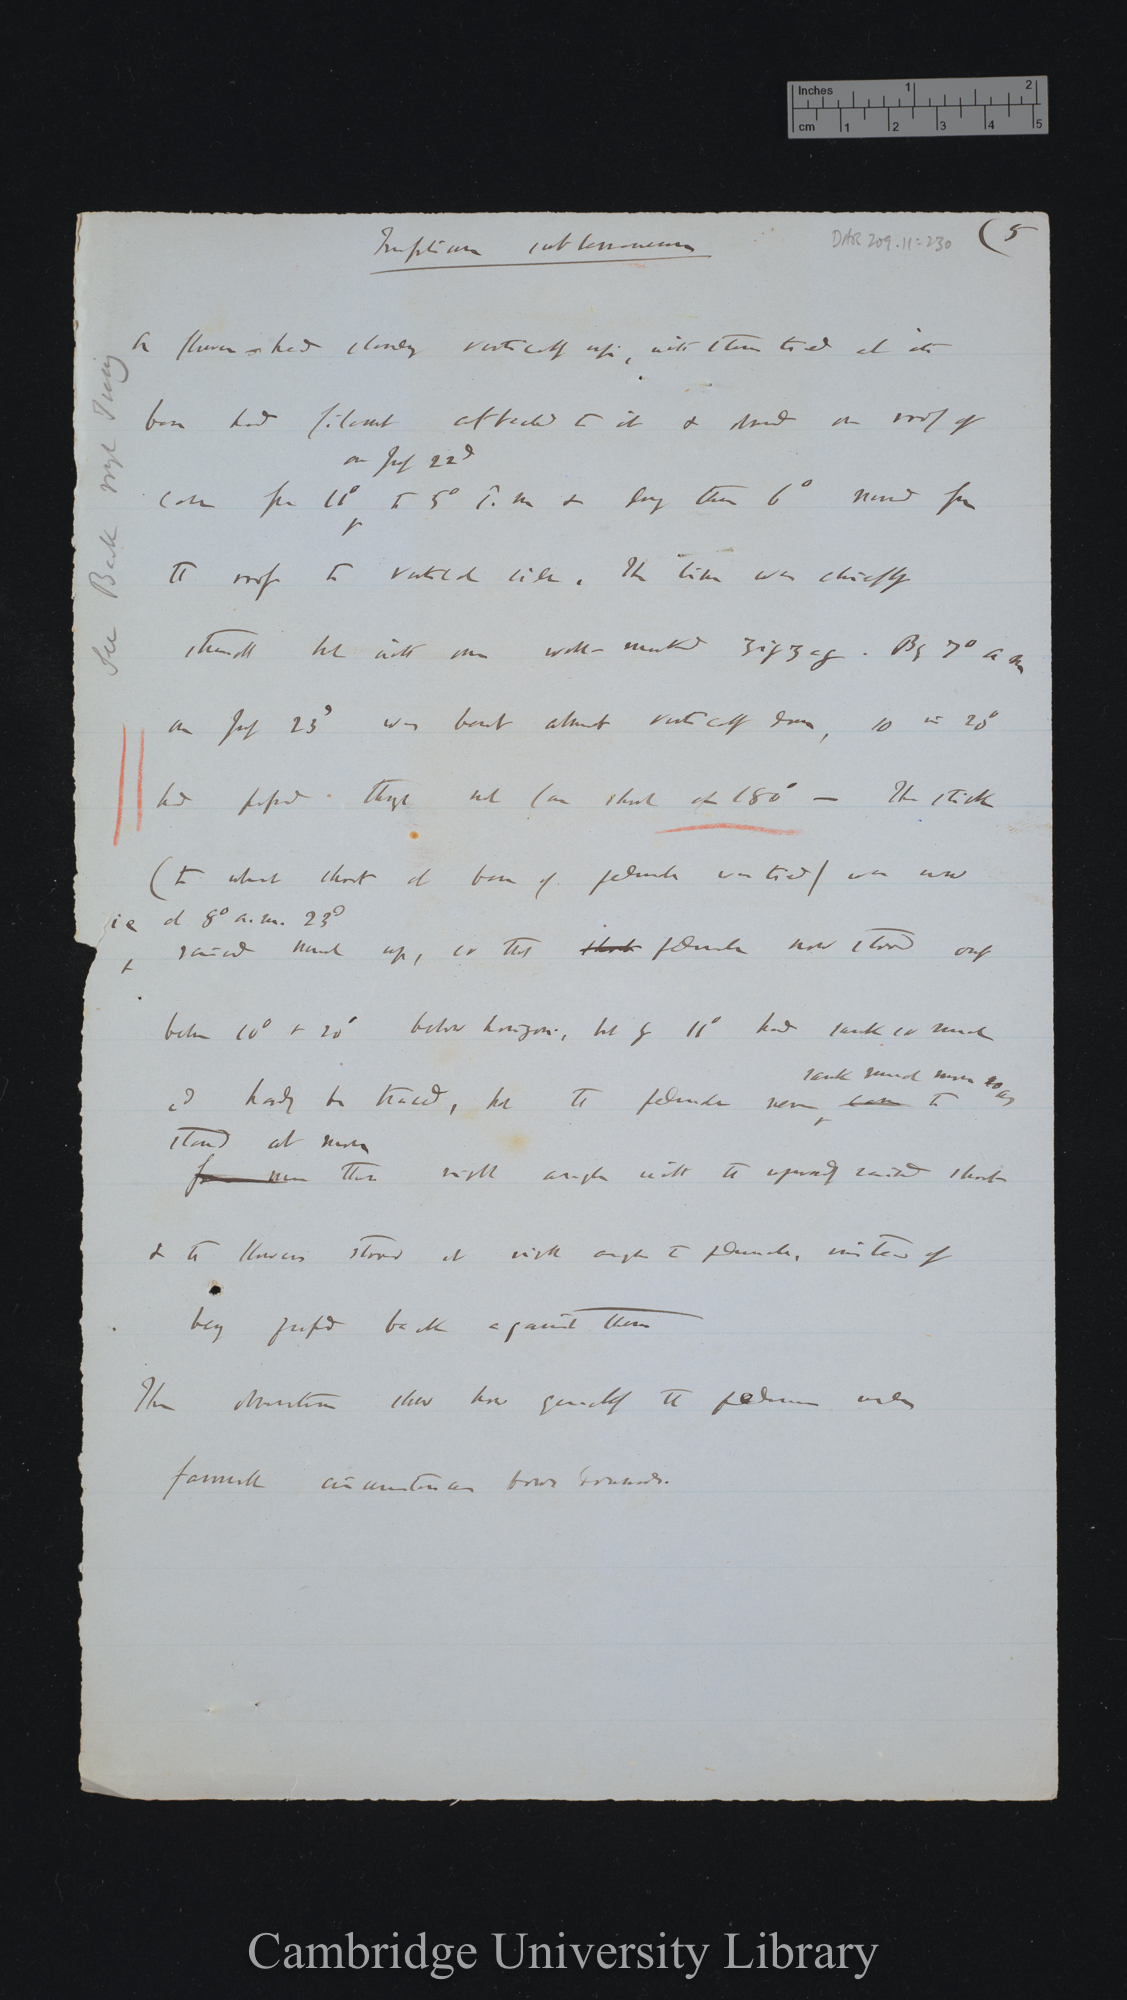 Inches 1 2
cm 1 2 3 4 5
DAR 209.11:230
(5
Trifolium subterraneum
A flower-head standing vertically up, with stem tied at its
base had filament attached to it & stood on roof of
on July 22d
case from 11° to 5° P.m & day then 6° moved from
the roof to vertical side. The line was chiefly
straight but with one well-marked zigzag. By 7° a m
on July 23d was bent almost vertically down, 10 or 20°
had passed through not far short of 180° — The stick
(to which shoot at base of peduncle was tied) was now
ie at 8° a.m. 23d
raised much up, so that shoot peduncle now stood only
between 10° & 20° below horizon, but by 11° had sunk so much
sank much more so as
cd hardly be traced, but the peduncle never came to
stand at more
from more than right angles with the upwardly raised shoot
& the flowers stood at right angle to peduncle, instead of
being pressed back against them
These observations show how quickly the peduncle under
favourable circumstances bows downwards.
See Back
Cambridge University Library